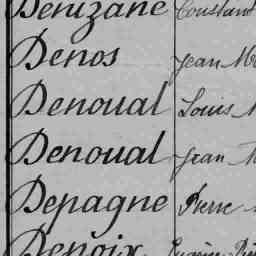 Denizane Constant
Denos Jean
Denoual Louis
Denoual Jean
Depagne Pierre
Denoix